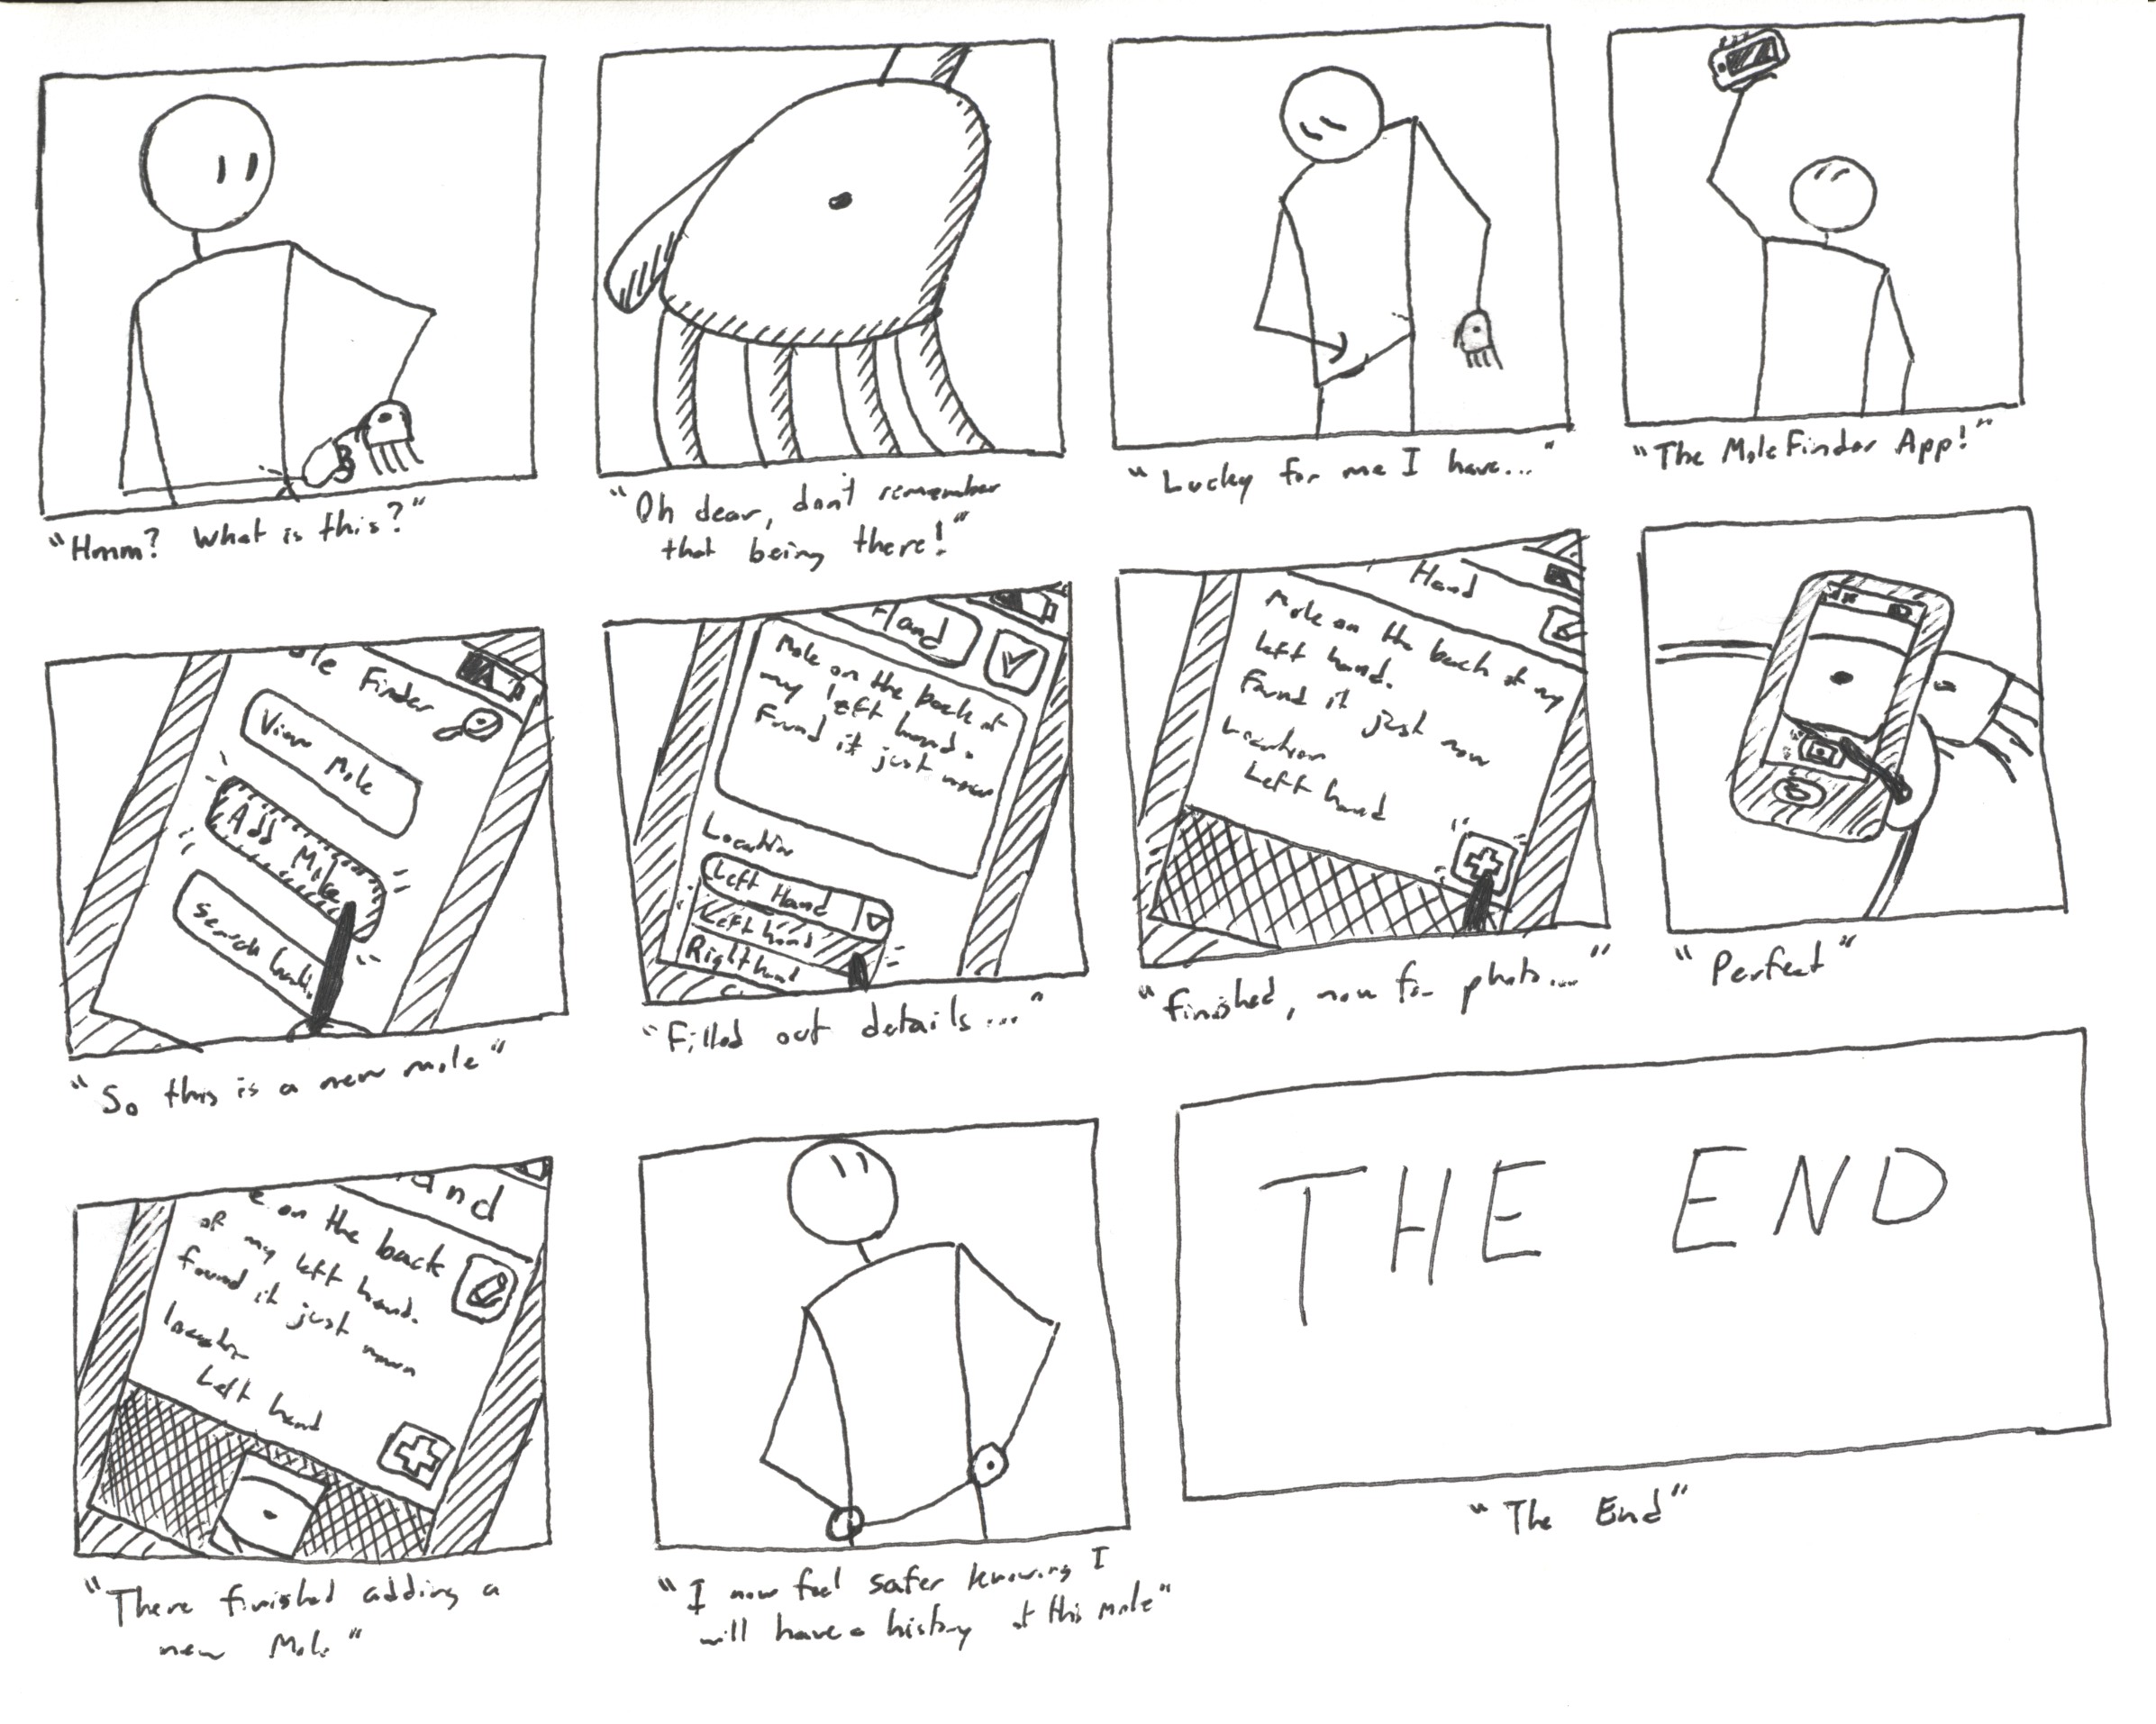 "Hmm? What is this?"
"Oh dear, don't remember
that being there!"
"Lucky for me I have..."
"The Mole Finder App!"
ole Finder
View Mole
Add Mole
Search
"So this is a new mole"
Hand
Mole on the back of
my left hand.
Found it just now
Location
Left Hand
Left hand
Right hand
"Filled out details..."
Hand
Mole on the back of my
left hand.
Found it just now
Location
Left hand
"finished, now for photo..."
"Perfect"
and
e on the back
of my left hand.
found it just now
Left hand
"There finished adding a
new Mole"
"I now feel safer knowing I
will have a history of this mole"
THE END
"The End"